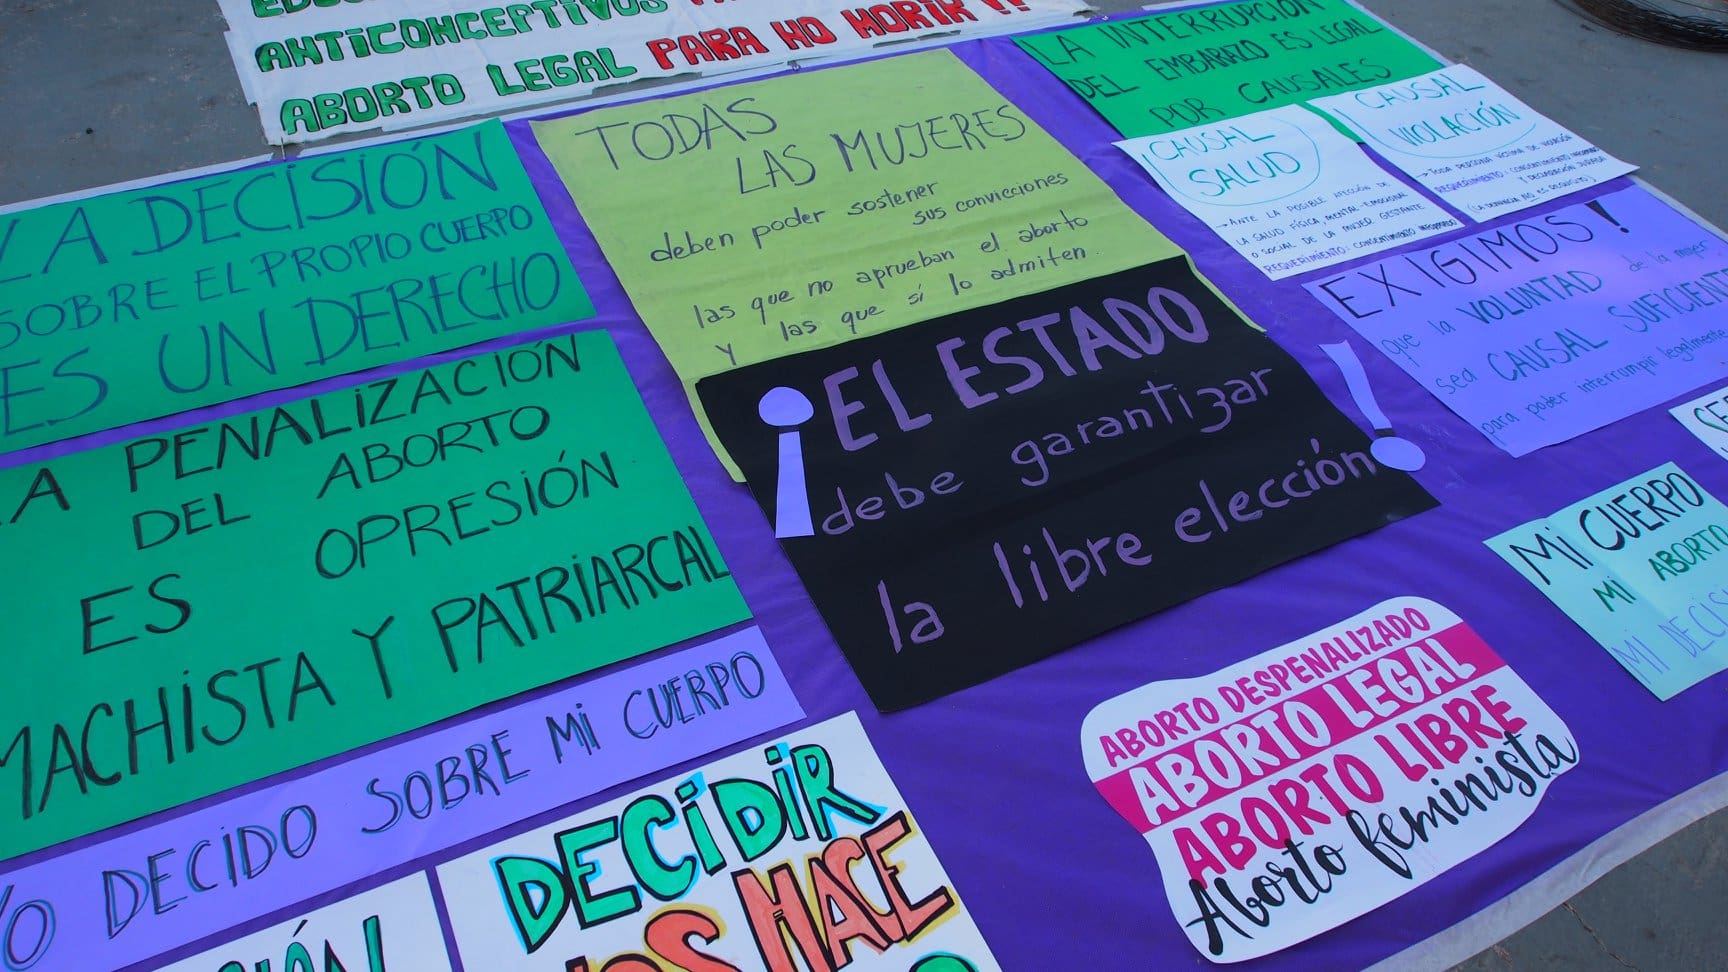 ANTICONCEPTIVOS
ABORTO LEGAL PARA NO MORIR !!
LA DECISIÓN
SOBRE EL PROPIO CUERPO
ES UN DERECHO
TODAS
LAS MUJERES
deben poder sostener
sus convicciones
las que no aprueban el aborto
y las que sí lo admiten
LA INTERRUPCIÓN
DEL EMBARAZO ES LEGAL
POR CAUSALES
CAUSAL
SALUD
→ ANTE LA POSIBLE AFECCIÓN DE
LA SALUD FÍSICA, MENTAL-EMOCIONAL
O SOCIAL DE LA MUJER GESTANTE
REQUERIMIENTO: CONSENTIMIENTO INFORMADO
CAUSAL
VIOLACIÓN
→ TODA PERSONA VÍCTIMA DE VIOLACIÓN
REQUERIMIENTO: CONSENTIMIENTO INFORMADO
Y DECLARACIÓN JURADA
(LA DENUNCIA NO ES REQUISITO)
EXIGIMOS!
que la VOLUNTAD de la mujer
sea CAUSAL SUFICIENTE
para poder interrumpir legalmente
¡EL ESTADO
debe garantizar
la libre elección!
LA PENALIZACIÓN
DEL ABORTO
ES OPRESIÓN
MACHISTA Y PATRIARCAL
YO DECIDO SOBRE MI CUERPO
DECIDIR
NOS HACE
MI CUERPO
MI ABORTO
MI DECISI
ABORTO DESPENALIZADO
ABORTO LEGAL
ABORTO LIBRE
Aborto feminista